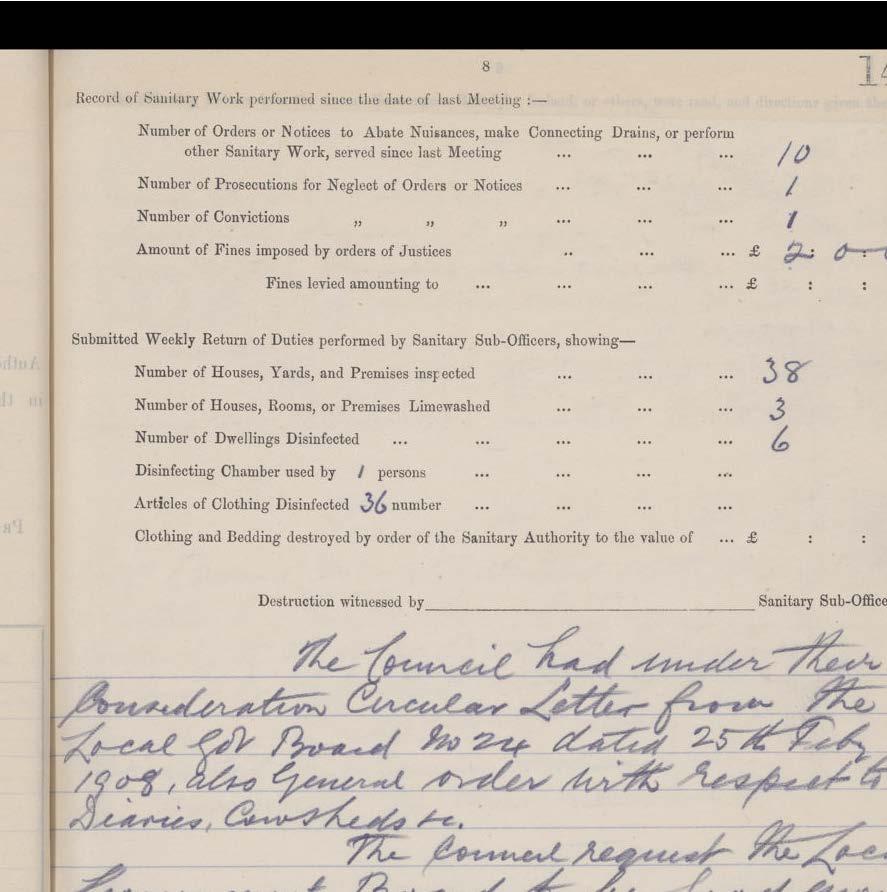 8
14
Record of Sanitary Work performed since the date of last Meeting :—
Number of Orders or Notices to Abate Nuisances, make Connecting Drains, or perform
other Sanitary Work, served since last Meeting ... ... ... 10
Number of Prosecutions for Neglect of Orders or Notices ... ... ... 1
Number of Convictions „ „ „ ... ... ... 1
Amount of Fines imposed by orders of Justices .. ... ... £ 2 : 0 -
Fines levied amounting to ... ... ... ... £ : :
Submitted Weekly Return of Duties performed by Sanitary Sub-Officers, showing—
Number of Houses, Yards, and Premises inspected ... ... ... 38
Number of Houses, Rooms, or Premises Limewashed ... ... ... 3
Number of Dwellings Disinfected ... ... ... ... ... 6
Disinfecting Chamber used by 1 persons ... ... ... ...
Articles of Clothing Disinfected 36 number ... ... ... ...
Clothing and Bedding destroyed by order of the Sanitary Authority to the value of ... £ : :
Destruction witnessed by Sanitary Sub-Office
The Council had under their
Consideration Circular Letter from the
Local Gov Board No 24 dated 25th Feby
1908, also General order with respect to
Diaries, Cowsheds &c.
The Council request the Loca
Board to be